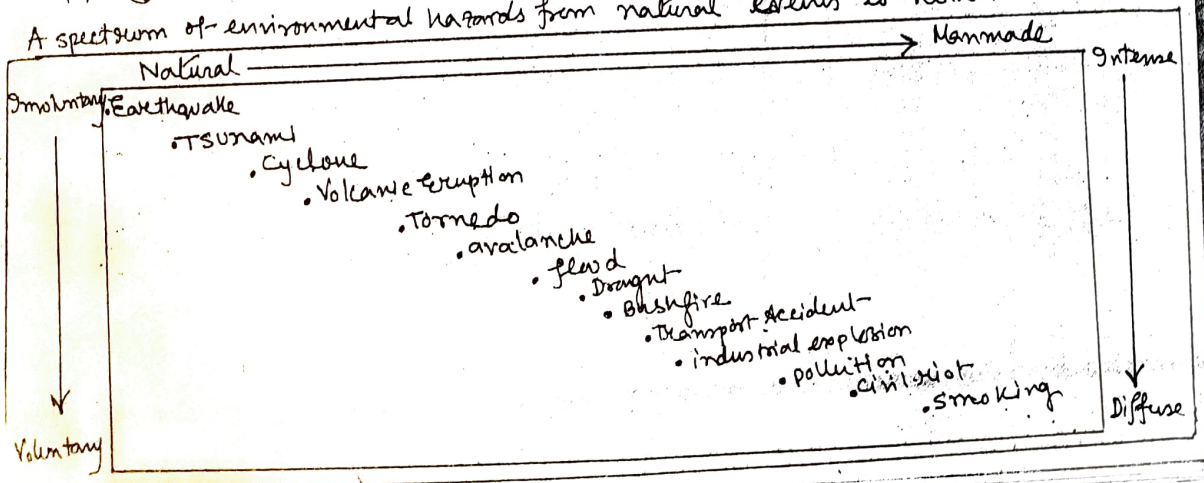 A spectrum of environmental hazards from natural events to
Natural Manmade
Involuntary Intense
.Earthquake
.TSUnami
.Cyclone
.Volcanic Eruption
.Tornedo
.avalanche
.flood
.Draught
.Bushfire
.Transport Accident
.industrial explosion
.pollution
.Civil riot
.smoking
Voluntary Diffuse